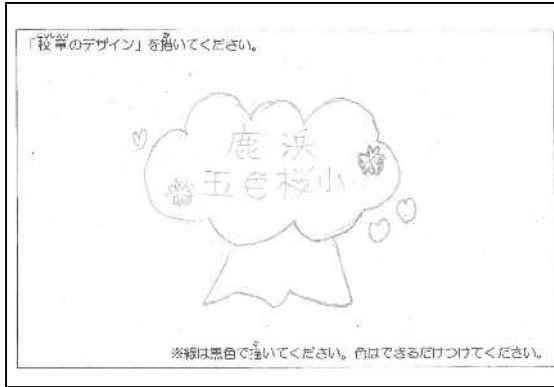 「校章のデザイン」を描いてください。
鹿浜
五色桜小
※線は黒色で描いてください。色はできるだけつけてください。